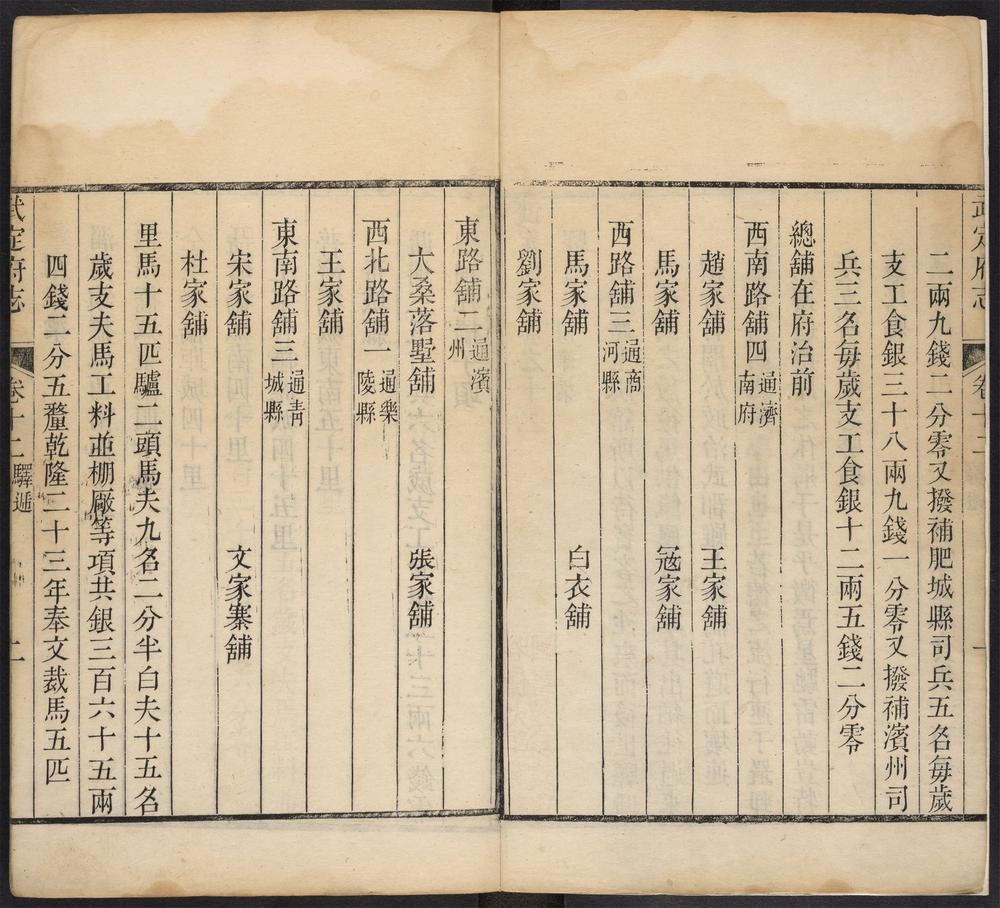 武定府志
卷十二
二兩九錢二分零又撥補肥城縣司兵五名每歲
支工食銀三十八兩九錢一分零又撥補濱州司
兵三名每歲支工食銀十二兩五錢二分零
總舖在府治前
西南路舖四通濟南府
趙家舖 王家舖
馬家舖 宼家舖
西路舖三通商河縣
馬家舖 白衣舖
劉家舖
東路舖二通濱州
大桑落墅舖 張家舖
西北路舖一通樂陵縣
王家舖
東南路舖三通青城縣
宋家舖 文家寨舖
杜家舖
里馬十五匹驢二頭馬夫九名二分半白夫十五名
歲支夫馬工料並棚廠等項共銀三百六十五兩
四錢二分五釐乾隆二十三年奉文裁馬五匹
武定府志
卷十二驛遞
二